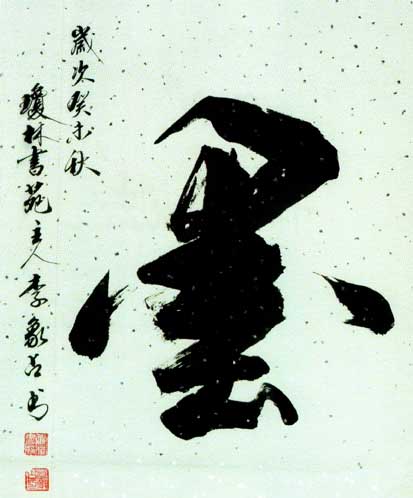 墨
歲次癸未秋
瓊林書苑主人李象吉书